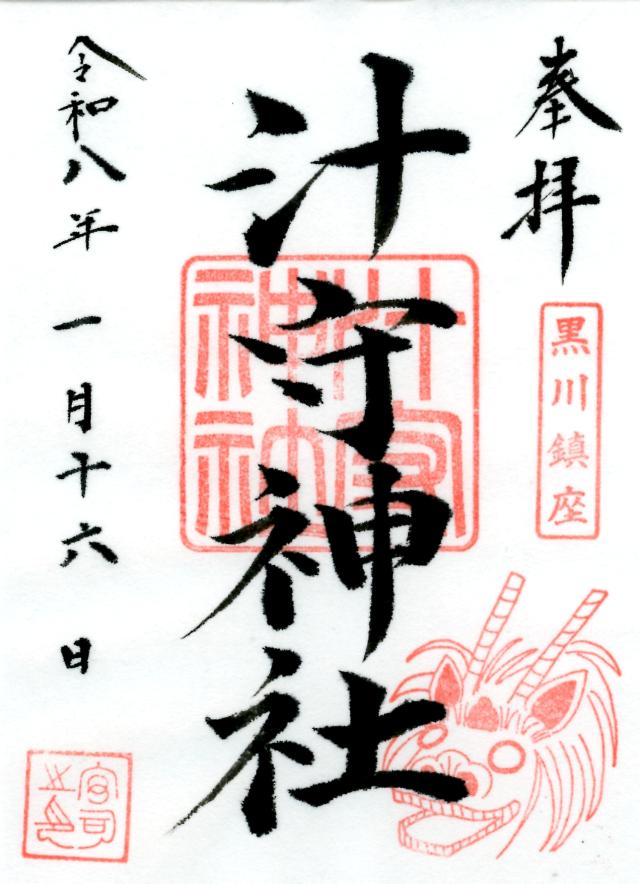 奉拝
黒川鎮座
汁守神社
汁守
神社
令和八年一月十六日
宮司
之印